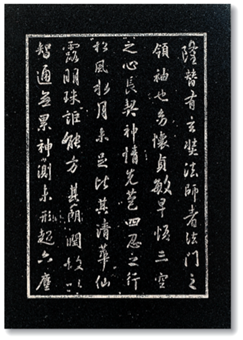 隆替有玄奘法師者法門之
領袖也幼懷貞敏早悟三空
之心長契神情先苞四忍之行
松風水月未足比其清華仙
露明珠詎能方其朗潤故以
智通無累神測未形超六塵